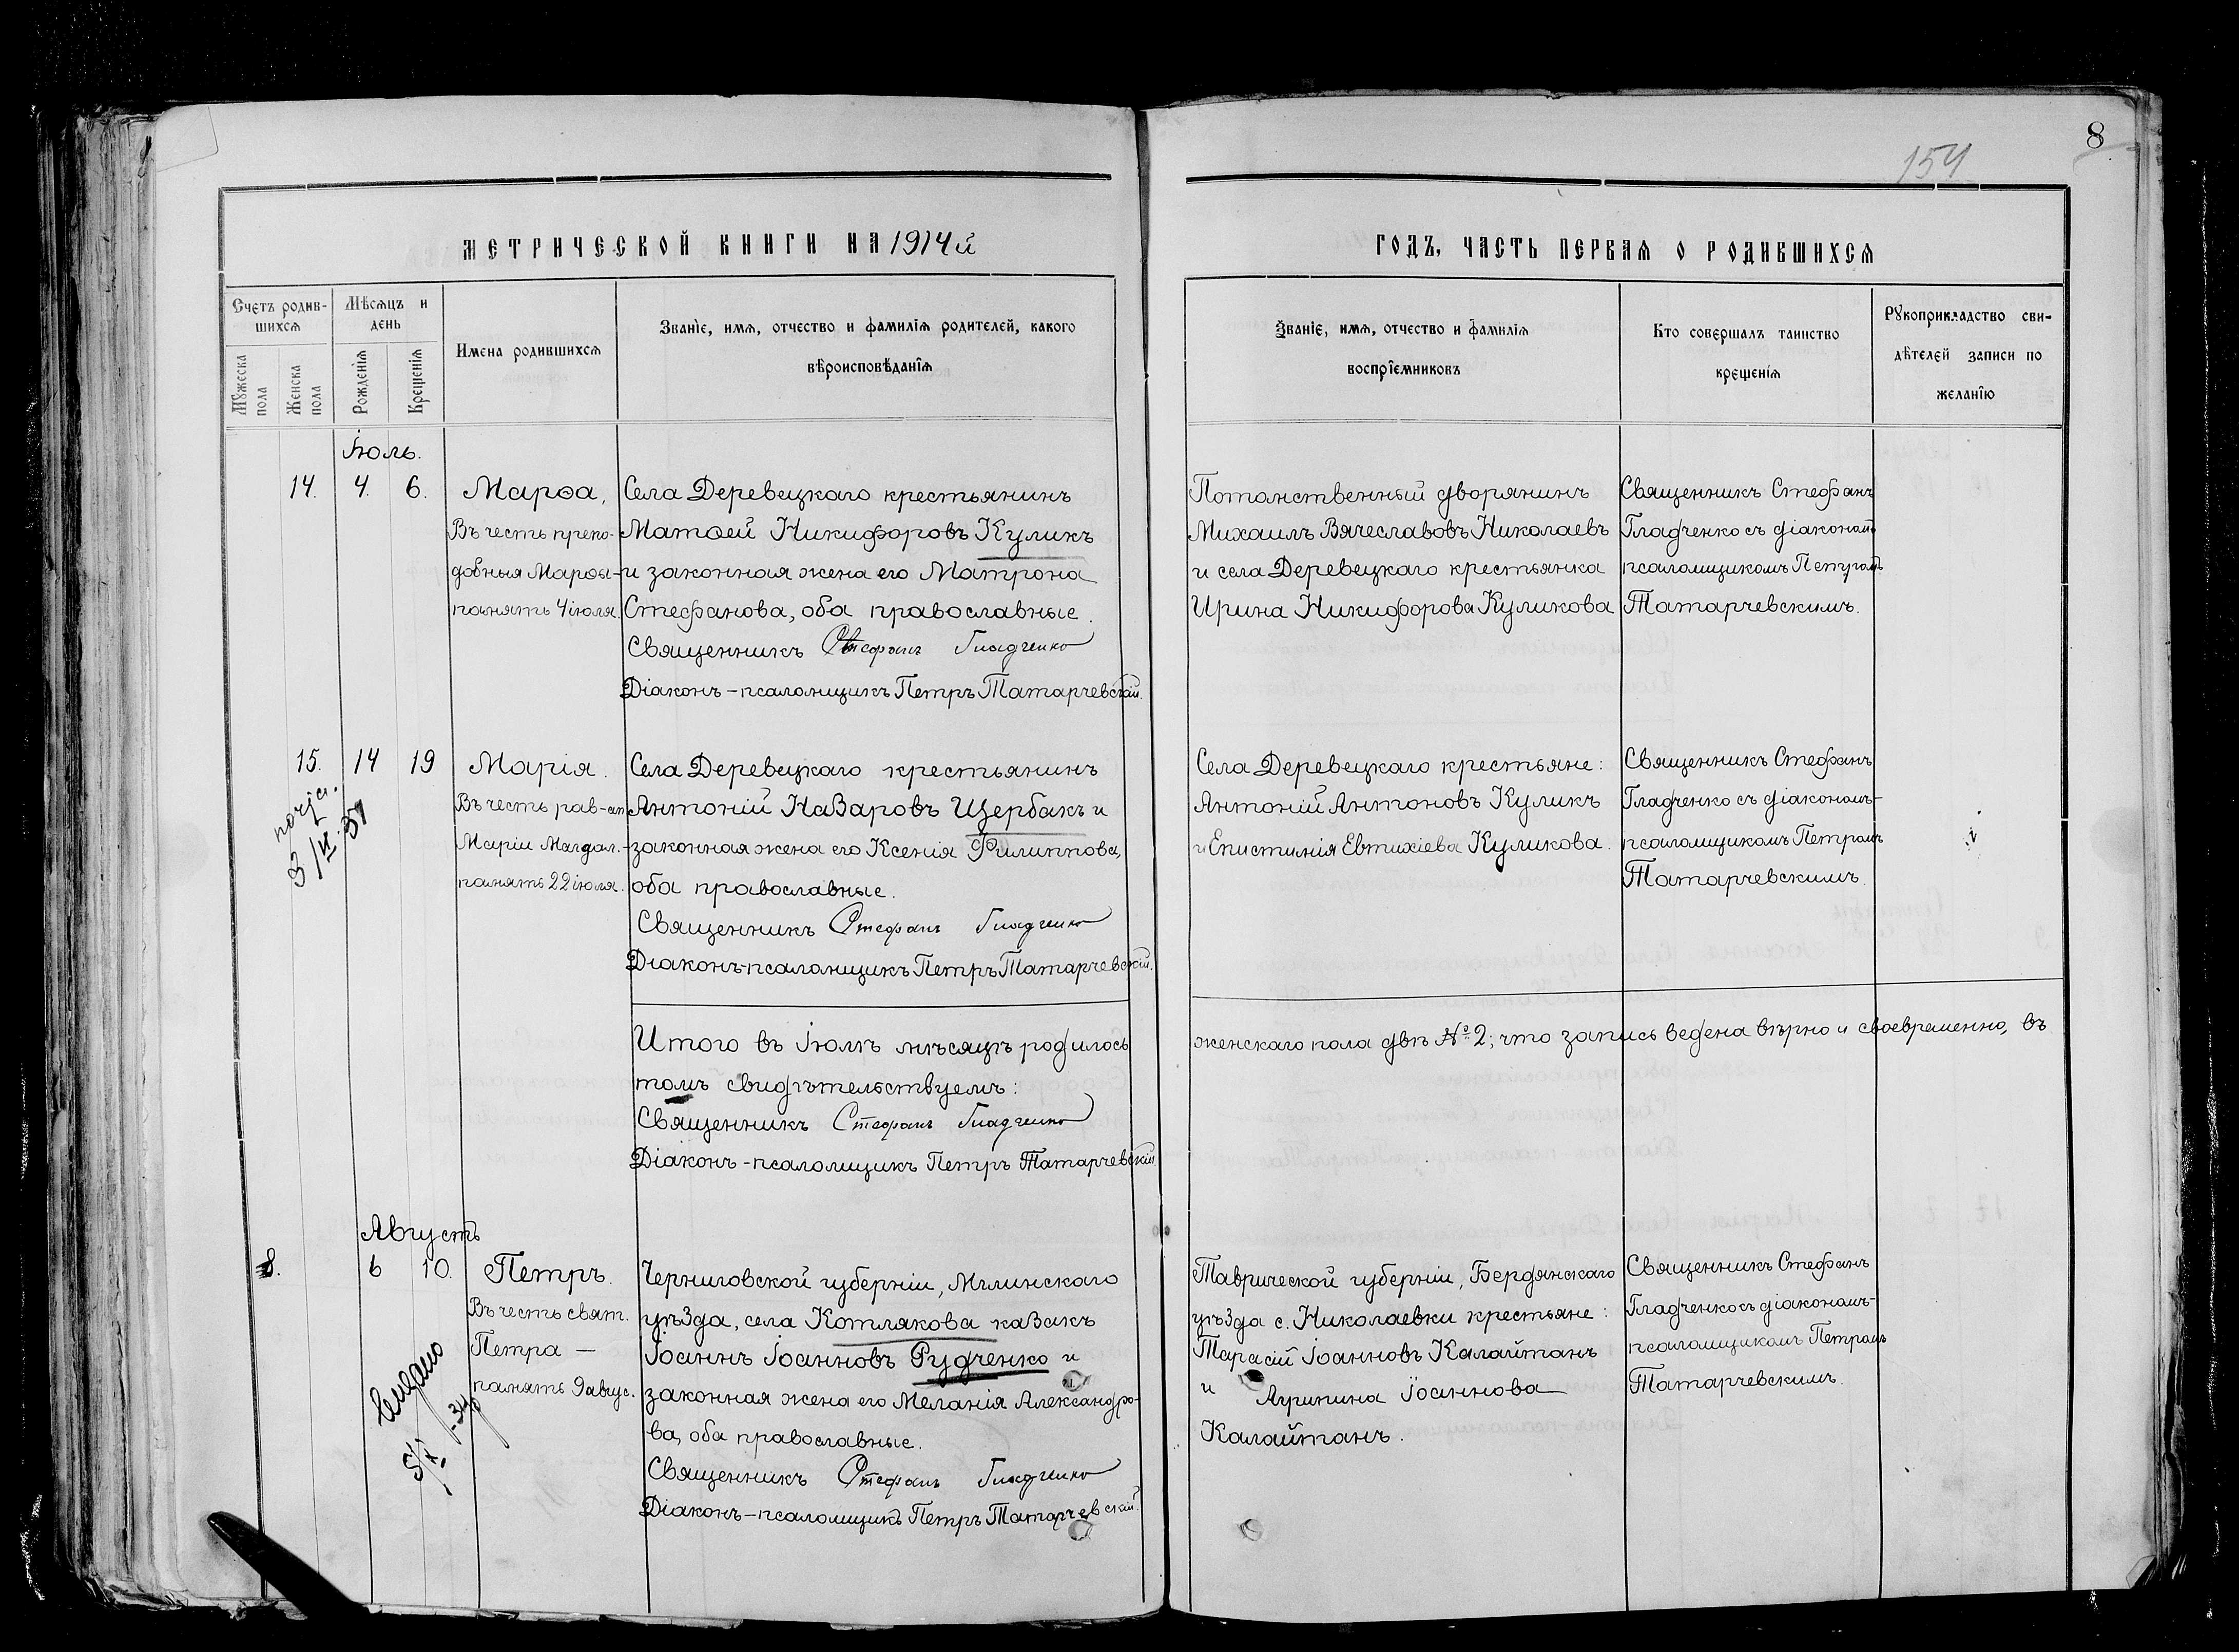 8
154
МЕТРИЧЕСКОЙ КНИГИ НА 1914й
ГОДЪ, ЧАСТЬ ПЕРВАЯ О РОДИВШИХСЯ
Счетъ родив-
шихся
Мѣсяцъ и
день
Мужеска
пола
Женска
пола
Рожденія
Крещенія
Имена родившихся
Званіе, имя, отчество и фамилія родителей, какого
вѣроисповѣданія
Званіе, имя, отчество и фамилія
воспріемниковъ
Кто совершалъ таинство
крещенія
Рукоприкладство сви-
дѣтелей записи по
желанію
Іюль.
14. 4. 6.
Марѳа,
Въ честь препо-
добныя Марѳы-
память 4 іюля.
Села Деревецкаго крестьянинъ
Матѳей Никифоровъ Куликъ
и законная жена его Матрона
Стефанова, оба православные.
Священникъ Стефанъ Гладченко
Діаконъ-псаломщикъ Петръ Татарчевскій.
Потомственный дворянинъ
Михаилъ Вячеславовъ Николаевъ
и села Деревецкаго крестьянка
Ирина Никифорова Куликова
Священникъ Стефанъ
Гладченко съ діакономъ
псаломщикомъ Петромъ
Татарчевскимъ.
15. 14 19
Марія.
Въ честь рав-ап
Маріи Магдал.-
память 22 іюля.
3/VI 37
Села Деревецкаго крестьянинъ
Антоній Назаровъ Щербакъ и
законная жена его Ксенія Филиппова,
оба православные.
Священникъ Стефанъ Гладченко
Діаконъ-псаломщикъ Петръ Татарчевскій.
Села Деревецкаго крестьяне:
Антоній Антоновъ Куликъ
и Епистимія Евтихіева Куликова.
Священникъ Стефанъ
Гладченко съ діакономъ-
псаломщикомъ Петромъ
Татарчевскимъ.
Итого въ Іюлѣ мѣсяцѣ родилось
женскаго пола двѣ № 2; что запись ведена вѣрно и своевременно, въ
томъ свидѣтельствуемъ:
Священникъ Стефанъ Гладченко
Діаконъ-псаломщикъ Петръ Татарчевскій
Августъ
8. 6 10.
Петръ.
Въ честь свят.
Петра —
память 9 авгус.
5/X-34
Черниговской губерніи, Мглинскаго
уѣзда, села Котлякова казакъ
Іоаннъ Іоанновъ Рудченко и
законная жена его Меланія Александро-
ва, оба православные.
Священникъ Стефанъ Гладченко
Діаконъ-псаломщикъ Петръ Татарчевскій.
Таврической губерніи, Бердянскаго
уѣзда с. Николаевки крестьяне:
Тарасій Іоанновъ Калайтанъ
и Агрипина Іоаннова
Калайтанъ.
Священникъ Стефанъ
Гладченко съ діакономъ-
псаломщикомъ Петромъ
Татарчевскимъ.